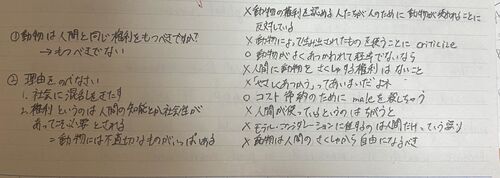 ①動物は人間と同じ権利をもつべきですか?
→もつべきでない
② 理由をのべなさい
1. 社会に混乱をきたす
2. 権利というのは人間の知能とか社会性が
あってこそ必要とされる
=動物には不適切なものがいっぱいある
×動物の権利を認める人たちが人のために動物が使われることに
反対している
×動物によって生み出されたものを使うことに criticize
○動物がよくあつかわれて
×人間に動物をさくしゅする権利はないこと
×「やさしくあつかう」ってあいまいだよネ
○コスト節約のために maleを殺しちゃう
×人間が使っているというのはちがうと
×モラル・コンシダレーションに値するのは人間だけ、ていう誤り
×動物は人間のさくしゅから自由になるべき